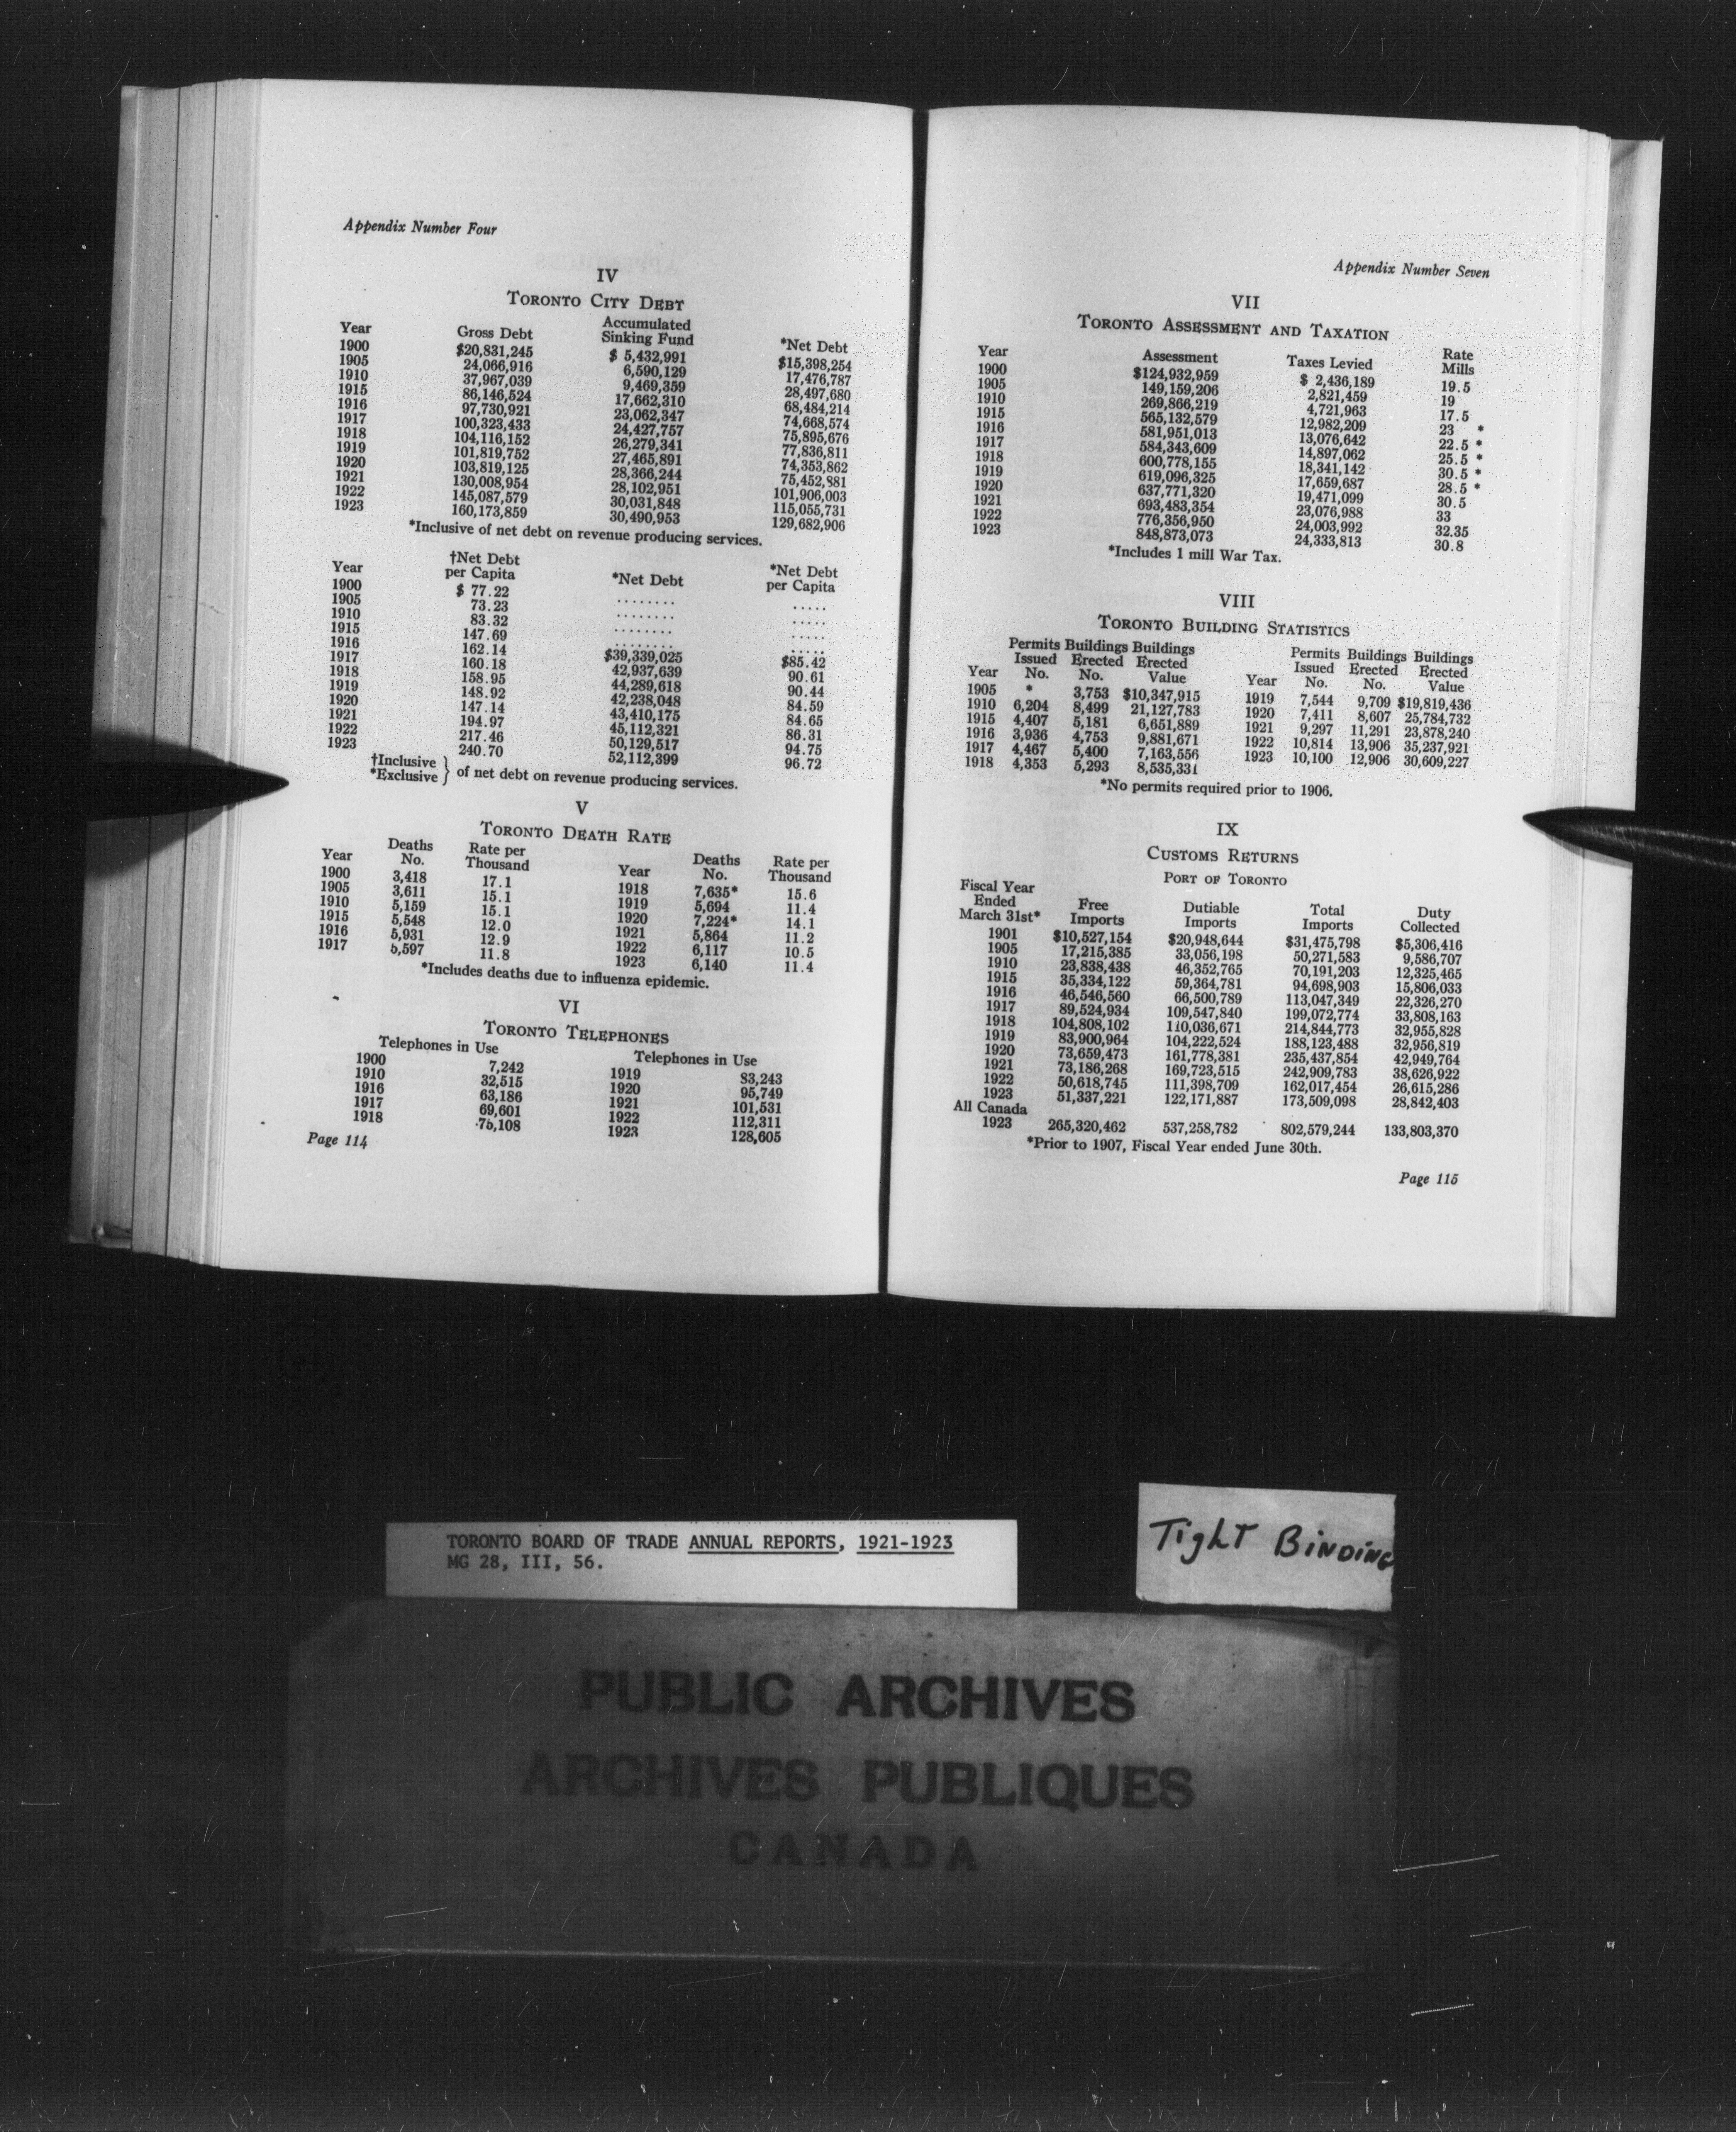 Appendix Number Four
IV
TORONTO CITY DEBT
Year Gross Debt Accumulated Sinking Fund *Net Debt
1900 $20,831,245 $ 5,432,991 $15,398,254
1905 24,066,916 6,590,129 17,476,787
1910 37,967,039 9,469,359 28,497,680
1915 86,146,524 17,662,310 68,484,214
1916 97,730,921 23,062,347 74,668,574
1917 100,323,433 24,427,757 75,895,676
1918 104,116,152 26,279,341 77,836,811
1919 101,819,752 27,465,891 74,353,862
1920 103,819,125 28,366,244 75,452,881
1921 130,008,954 28,102,951 101,906,003
1922 145,087,579 30,031,848 115,055,731
1923 160,173,859 30,490,953 129,682,906
*Inclusive of net debt on revenue producing services.
Year †Net Debt per Capita *Net Debt *Net Debt per Capita
1900 $ 77.22 ........ .....
1905 73.23 ........ .....
1910 83.32 ........ .....
1915 147.69 ........ .....
1916 162.14 $39,339,025 $85.42
1917 160.18 42,937,639 90.61
1918 158.95 44,289,618 90.44
1919 148.92 42,238,048 84.59
1920 147.14 43,410,175 84.65
1921 194.97 45,112,321 86.31
1922 217.46 50,129,517 94.75
1923 240.70 52,112,399 96.72
†Inclusive
*Exclusive } of net debt on revenue producing services.
V
TORONTO DEATH RATE
Year Deaths No. Rate per Thousand Year Deaths No. Rate per Thousand
1900 3,418 17.1 1918 7,635* 15.6
1905 3,611 15.1 1919 5,694 11.4
1910 5,159 15.1 1920 7,224* 14.1
1915 5,548 12.0 1921 5,864 11.2
1916 5,931 12.9 1922 6,117 10.5
1917 5,597 11.8 1923 6,140 11.4
*Includes deaths due to influenza epidemic.
VI
TORONTO TELEPHONES
Telephones in Use Telephones in Use
1900 7,242 1919 83,243
1910 32,515 1920 95,749
1916 63,186 1921 101,531
1917 69,601 1922 112,311
1918 75,108 1923 128,605
Page 114
Appendix Number Seven
VII
TORONTO ASSESSMENT AND TAXATION
Year Assessment Taxes Levied Rate Mills
1900 $124,932,959 $ 2,436,189 19.5
1905 149,159,206 2,821,459 19
1910 269,866,219 4,721,963 17.5
1915 565,132,579 12,982,209 23 *
1916 581,951,013 13,076,642 22.5 *
1917 584,343,609 14,897,062 25.5 *
1918 600,778,155 18,341,142 30.5 *
1919 619,096,325 17,659,687 28.5 *
1920 637,771,320 19,471,099 30.5
1921 693,483,354 23,076,988 33
1922 776,356,950 24,003,992 32.35
1923 848,873,073 24,333,813 30.8
*Includes 1 mill War Tax.
VIII
TORONTO BUILDING STATISTICS
Year Permits Issued No. Buildings Erected No. Buildings Erected Value Year Permits Issued No. Buildings Erected No. Buildings Erected Value
1905 * 3,753 $10,347,915 1919 7,544 9,709 $19,819,436
1910 6,204 8,499 21,127,783 1920 7,411 8,607 25,784,732
1915 4,407 5,181 6,651,889 1921 9,297 11,291 23,878,240
1916 3,936 4,753 9,881,671 1922 10,814 13,906 35,237,921
1917 4,467 5,400 7,163,556 1923 10,100 12,906 30,609,227
1918 4,353 5,293 8,535,331
*No permits required prior to 1906.
IX
CUSTOMS RETURNS
PORT OF TORONTO
Fiscal Year Ended March 31st* Free Imports Dutiable Imports Total Imports Duty Collected
1901 $10,527,154 $20,948,644 $31,475,798 $5,306,416
1905 17,215,385 33,056,198 50,271,583 9,586,707
1910 23,838,438 46,352,765 70,191,203 12,325,465
1915 35,334,122 59,364,781 94,698,903 15,806,033
1916 46,546,560 66,500,789 113,047,349 22,326,270
1917 89,524,934 109,547,840 199,072,774 33,808,163
1918 104,808,102 110,036,671 214,844,773 32,955,828
1919 83,900,964 104,222,524 188,123,488 32,956,819
1920 73,659,473 161,778,381 235,437,854 42,949,764
1921 73,186,268 169,723,515 242,909,783 38,626,922
1922 50,618,745 111,398,709 162,017,454 26,615,286
1923 51,337,221 122,171,887 173,509,098 28,842,403
All Canada
1923 265,320,462 537,258,782 802,579,244 133,803,370
*Prior to 1907, Fiscal Year ended June 30th.
Page 115
TORONTO BOARD OF TRADE ANNUAL REPORTS, 1921-1923
MG 28, III, 56.
Tight Binding
PUBLIC ARCHIVES
ARCHIVES PUBLIQUES
CANADA